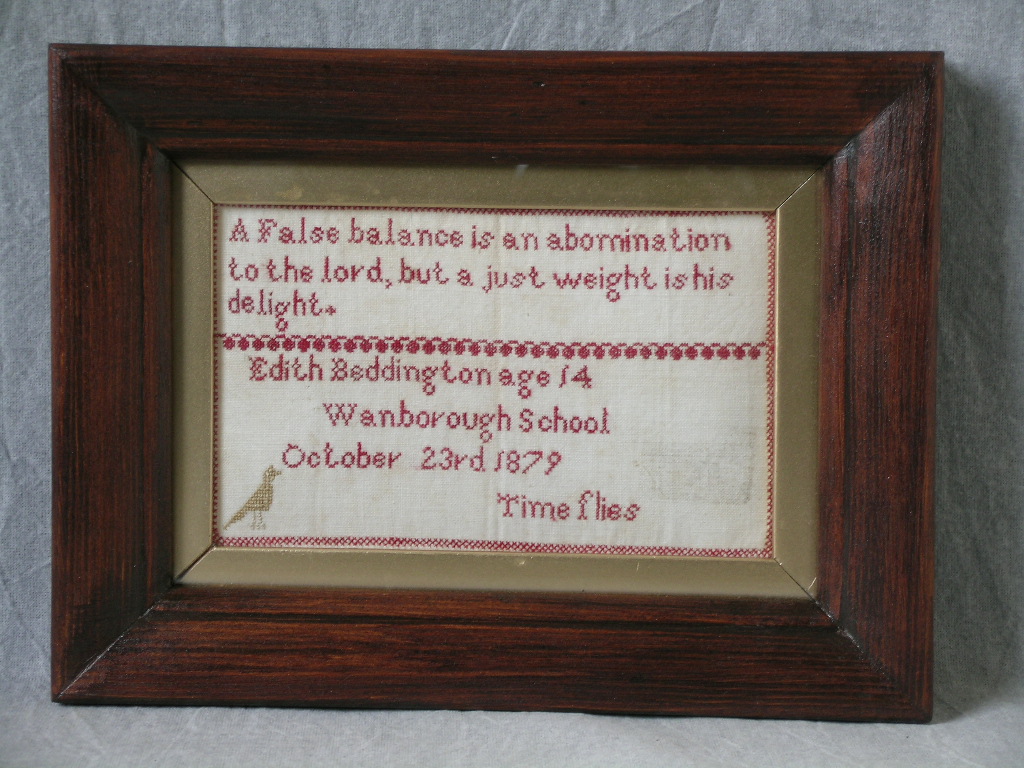 A False balance is an abomination
to the lord, but a just weight is his
delight.
Edith Beddington age 14
Wanborough School
October 23rd 1879
Time flies